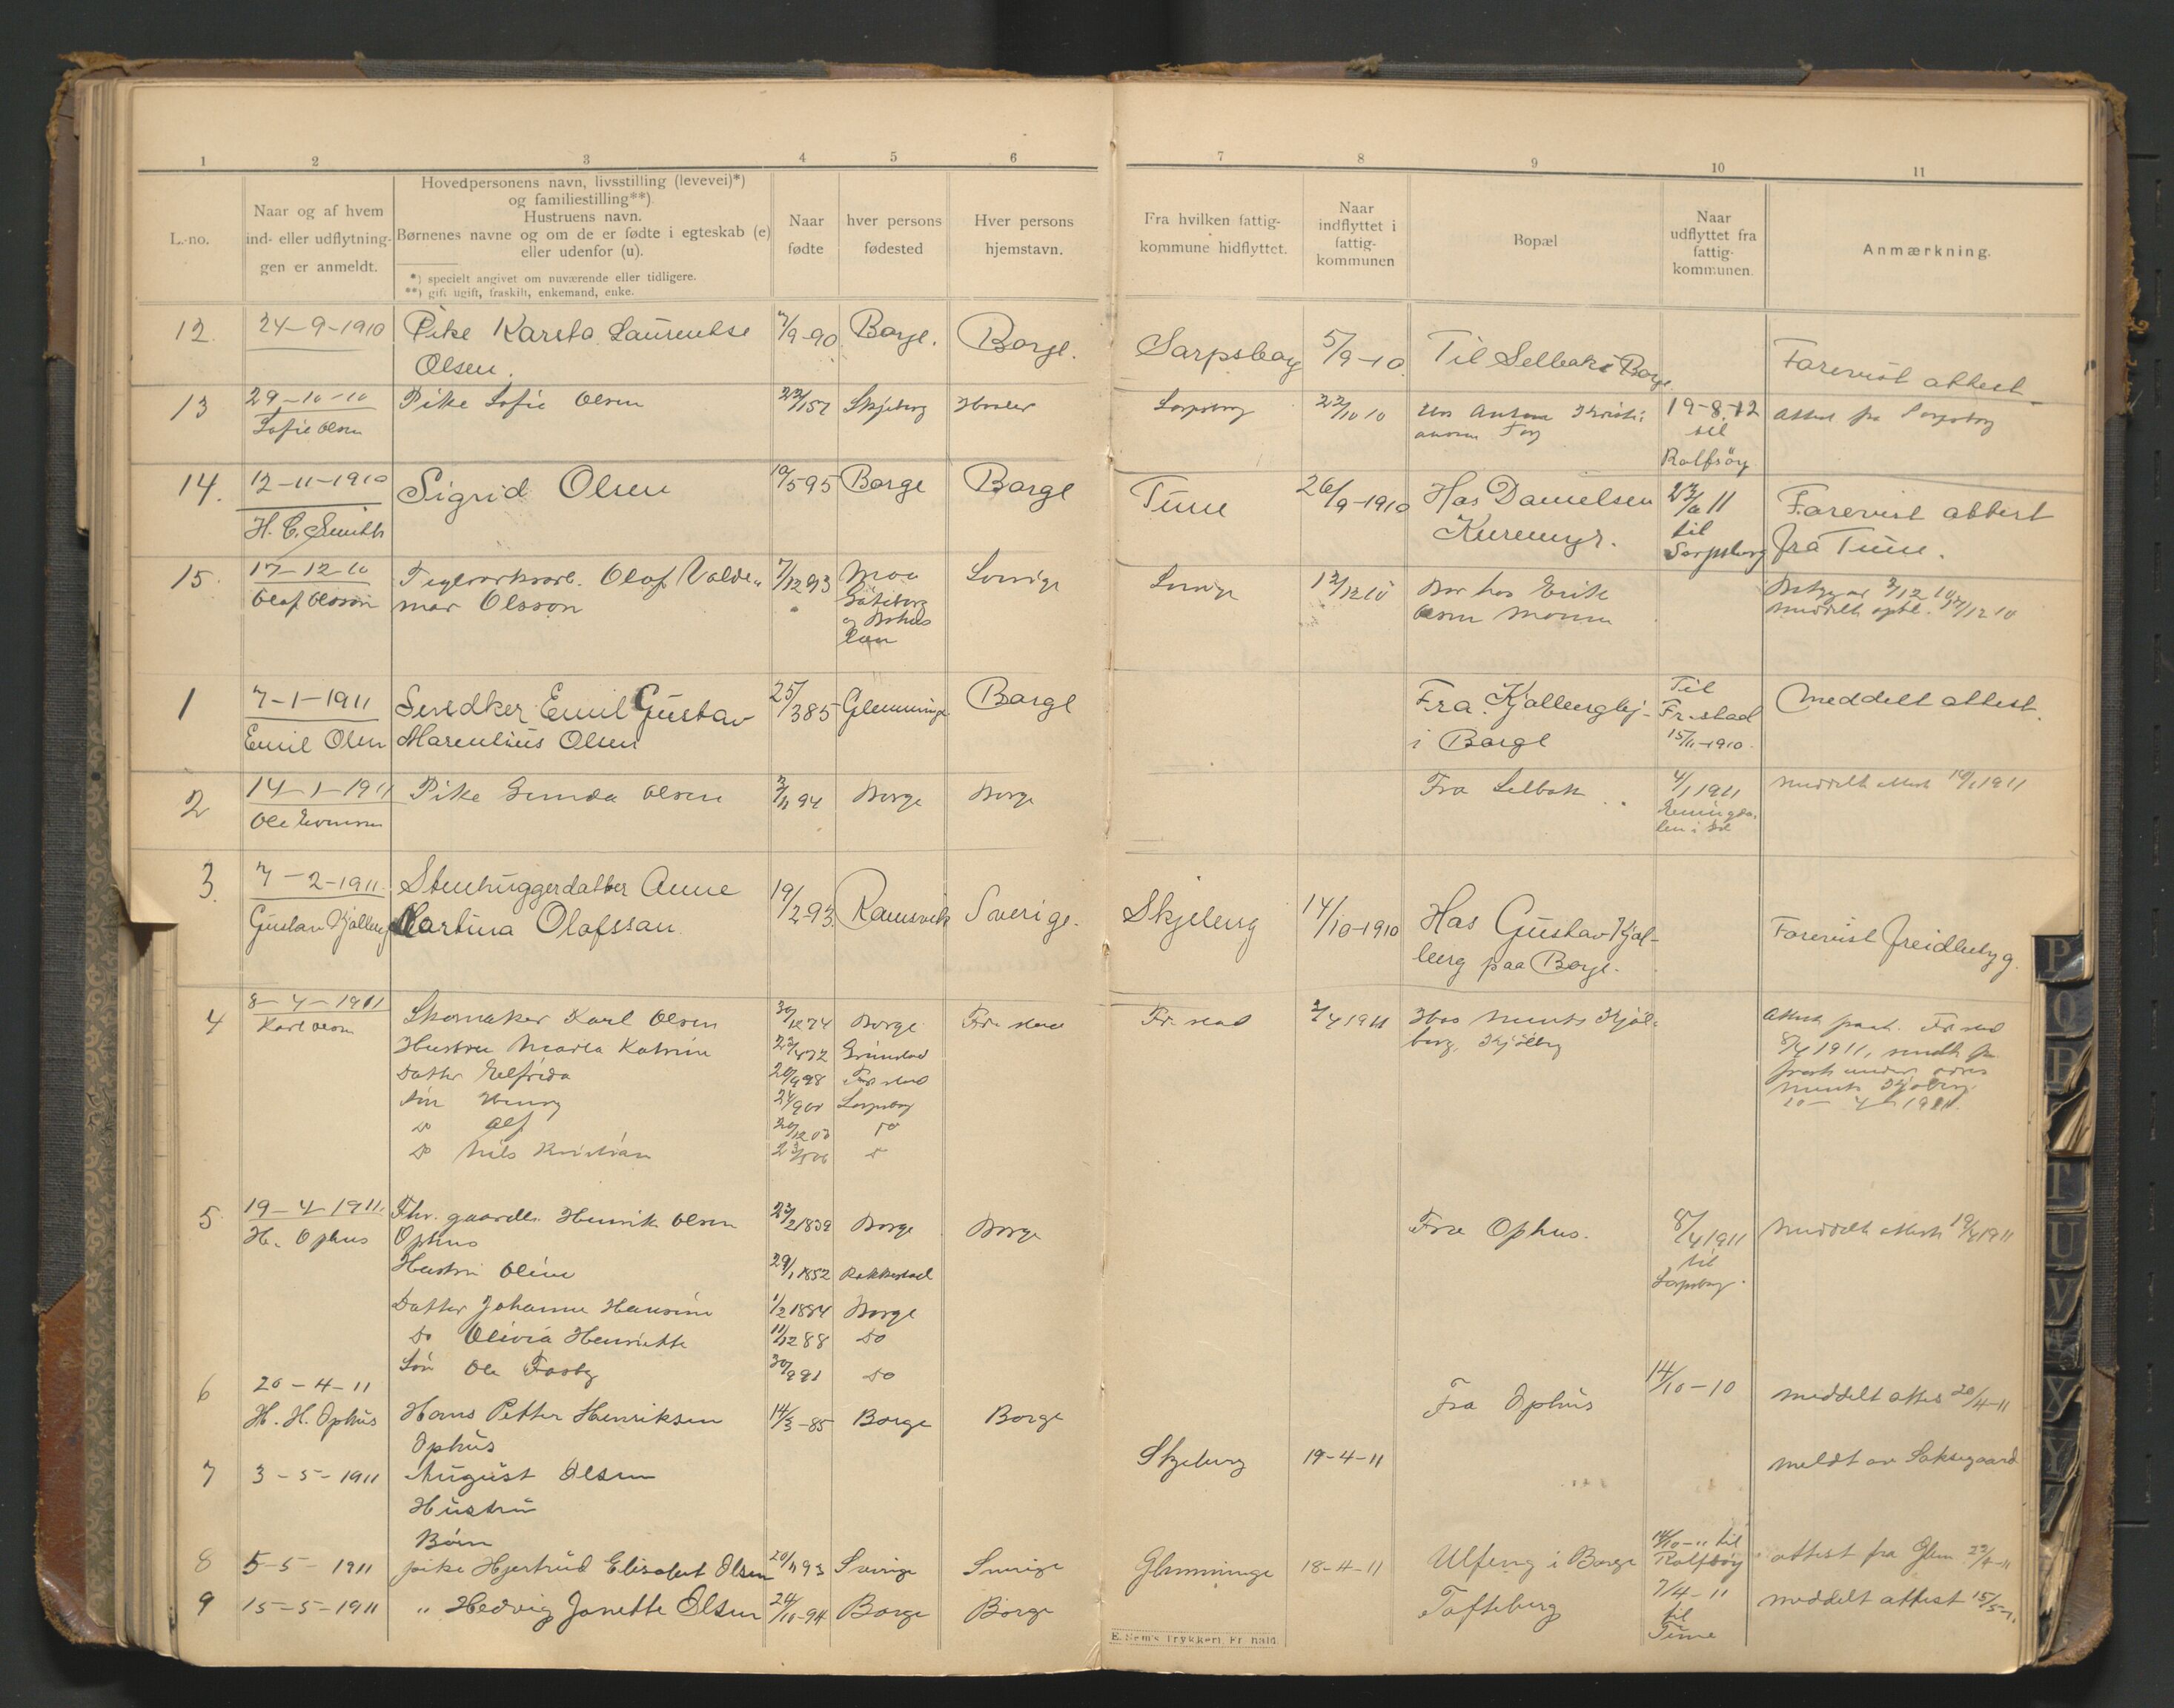 1 2 3 4 5 6 7 8 9 10 11
L.-no.
Naar og af hvem
ind- eller udflytnin-
gen er anmeldt.
Hovedpersonens navn, livsstilling (levevei)*)
og familiestilling**)
Hustruens navn.
Børnenes navne og om de er fødte i egteskab (e)
eller udenfor (u).
*) specielt angivet om nuværende eller tidligere.
**) gift, ugift, fraskilt, enkemand, enke.
Naar
fødte
hver persons
fødested
Hver persons
hjemstavn.
Fra hvilken fattig-
kommune hidflyttet.
Naar
indflyttet i
fattig-
kommunen
Bopæl
Naar
udflyttet fra
fattig-
kommunen.
Anmærkning.
12. 24-9-1910 Pike Karsta Laurentse 7/9-90 Borge. Borge. Sarpsborg 5/9-10. Til Selbak i Borge Forevist attest
Olsen.
13 29-10-10 Pike Sofie Olsen Skjeberg Hvaler Sarpsborg 22/10 10 Hos Anton 19-8-12 Attest fra Sarpsborg
Sofie Olsen til
Rolfsøy
14. 12-11-1910 Sigrid Olsen 10/5 95 Borge Borge Tune 26/9-1910 Hos Danielsen til Forevist attest
H. C. Smith Kuremyr. Sarpsborg fra Tune.
15 17-12-10 Olaf Valde- 7/12 93 Moa Sverige Sverige 12/12 10 Bor hos Erik
Olaf Olsson mar Olsson Göteborg Olsen Moum
og Bohus
län
1 7-1-1911 Snedker Emil Gustav 25/3 85 Glemminge Borge Fra Kjølberg Til Meddelt attest.
Emil Olsen Marentius Olsen i Borge Fr.stad
15/11-1910.
2 14-1-1911 Pike Gunda Olsen Borge Borge Fra Selbak 4/1 1911 Meddelt attest 14/1 1911
Ole Evensen
3. 7-2-1911. Stenhuggerdatter Anne 19/2-93. Ramsvik Sverige. Skjeberg 14/10-1910 Hos Gustav Kjøl-
Gustav Kjølberg Martina Olafssan. berg paa Borge. Forevist
4 8-4-1911 Skomaker Karl Olsen 30/12 74 Borge Fr.stad Fr.stad 2/4 1911 Hos Kjøl-
Karl Olsen Hustru Marta Katrine Grimstad berg, Kjølberg
Datter Elfrida 20/9 98 Fr.stad 8/4 1911, sendt
Søn Henry Sarpsborg
Do Alf Do
Do Nils Kristian
20-4-1911.
5 19-4-1911. Fhv. gaardbr. Henrik Olsen 1839 Borge Borge Fra Ophus. 8/4 1911 Meddelt attest 19/4 1911
H. Ophus Ophus til
Hustru Oline 29/1 1852 Rakkestad Sarpsborg.
Datter Johanne Hansine 1/2 1884 Borge
Do Olivia Henriette 11/12 88 Do
Søn Ole 30/9 91 Do
6 20-4-11 Fra Ophus 14/10-10 meddelt attest 20/4-11
H. H. Ophus Hans Petter Henriksen 14/3-85 Borge Borge
Ophus
7 3-5-1911 August Olsen Skjeberg 19-4-11 meldt av Saksegaard
Hustru
Børn
8 5-5-1911 pike Hjertrud Elisabet Olsen Sverige Sverige Glemminge 18-4-11 Ulfeng i Borge til Rolfsøy attest fra Glem.
9 15-5-1911 " Hedvig Janette Olsen 24/10-94 Borge Borge Tofteberg 7/4-11 meddelt attest 15/5-11
til
Tune
E. Sem's Trykkeri, Fr.hald.
P
Q
R
T
U
V
X
Y